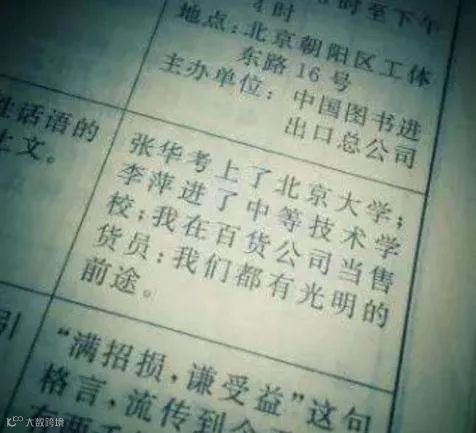 时至下午
4时
地点：北京朝阳区工体
东路16号
主办单位：中国图书进
出口总公司
性话语的
上文。
张华考上了北京大学；
李萍进了中等技术学
校；我在百货公司当售
货员：我们都有光明的
前途。
引
“满招损，谦受益”这句
格言，流传到今
大数跨境